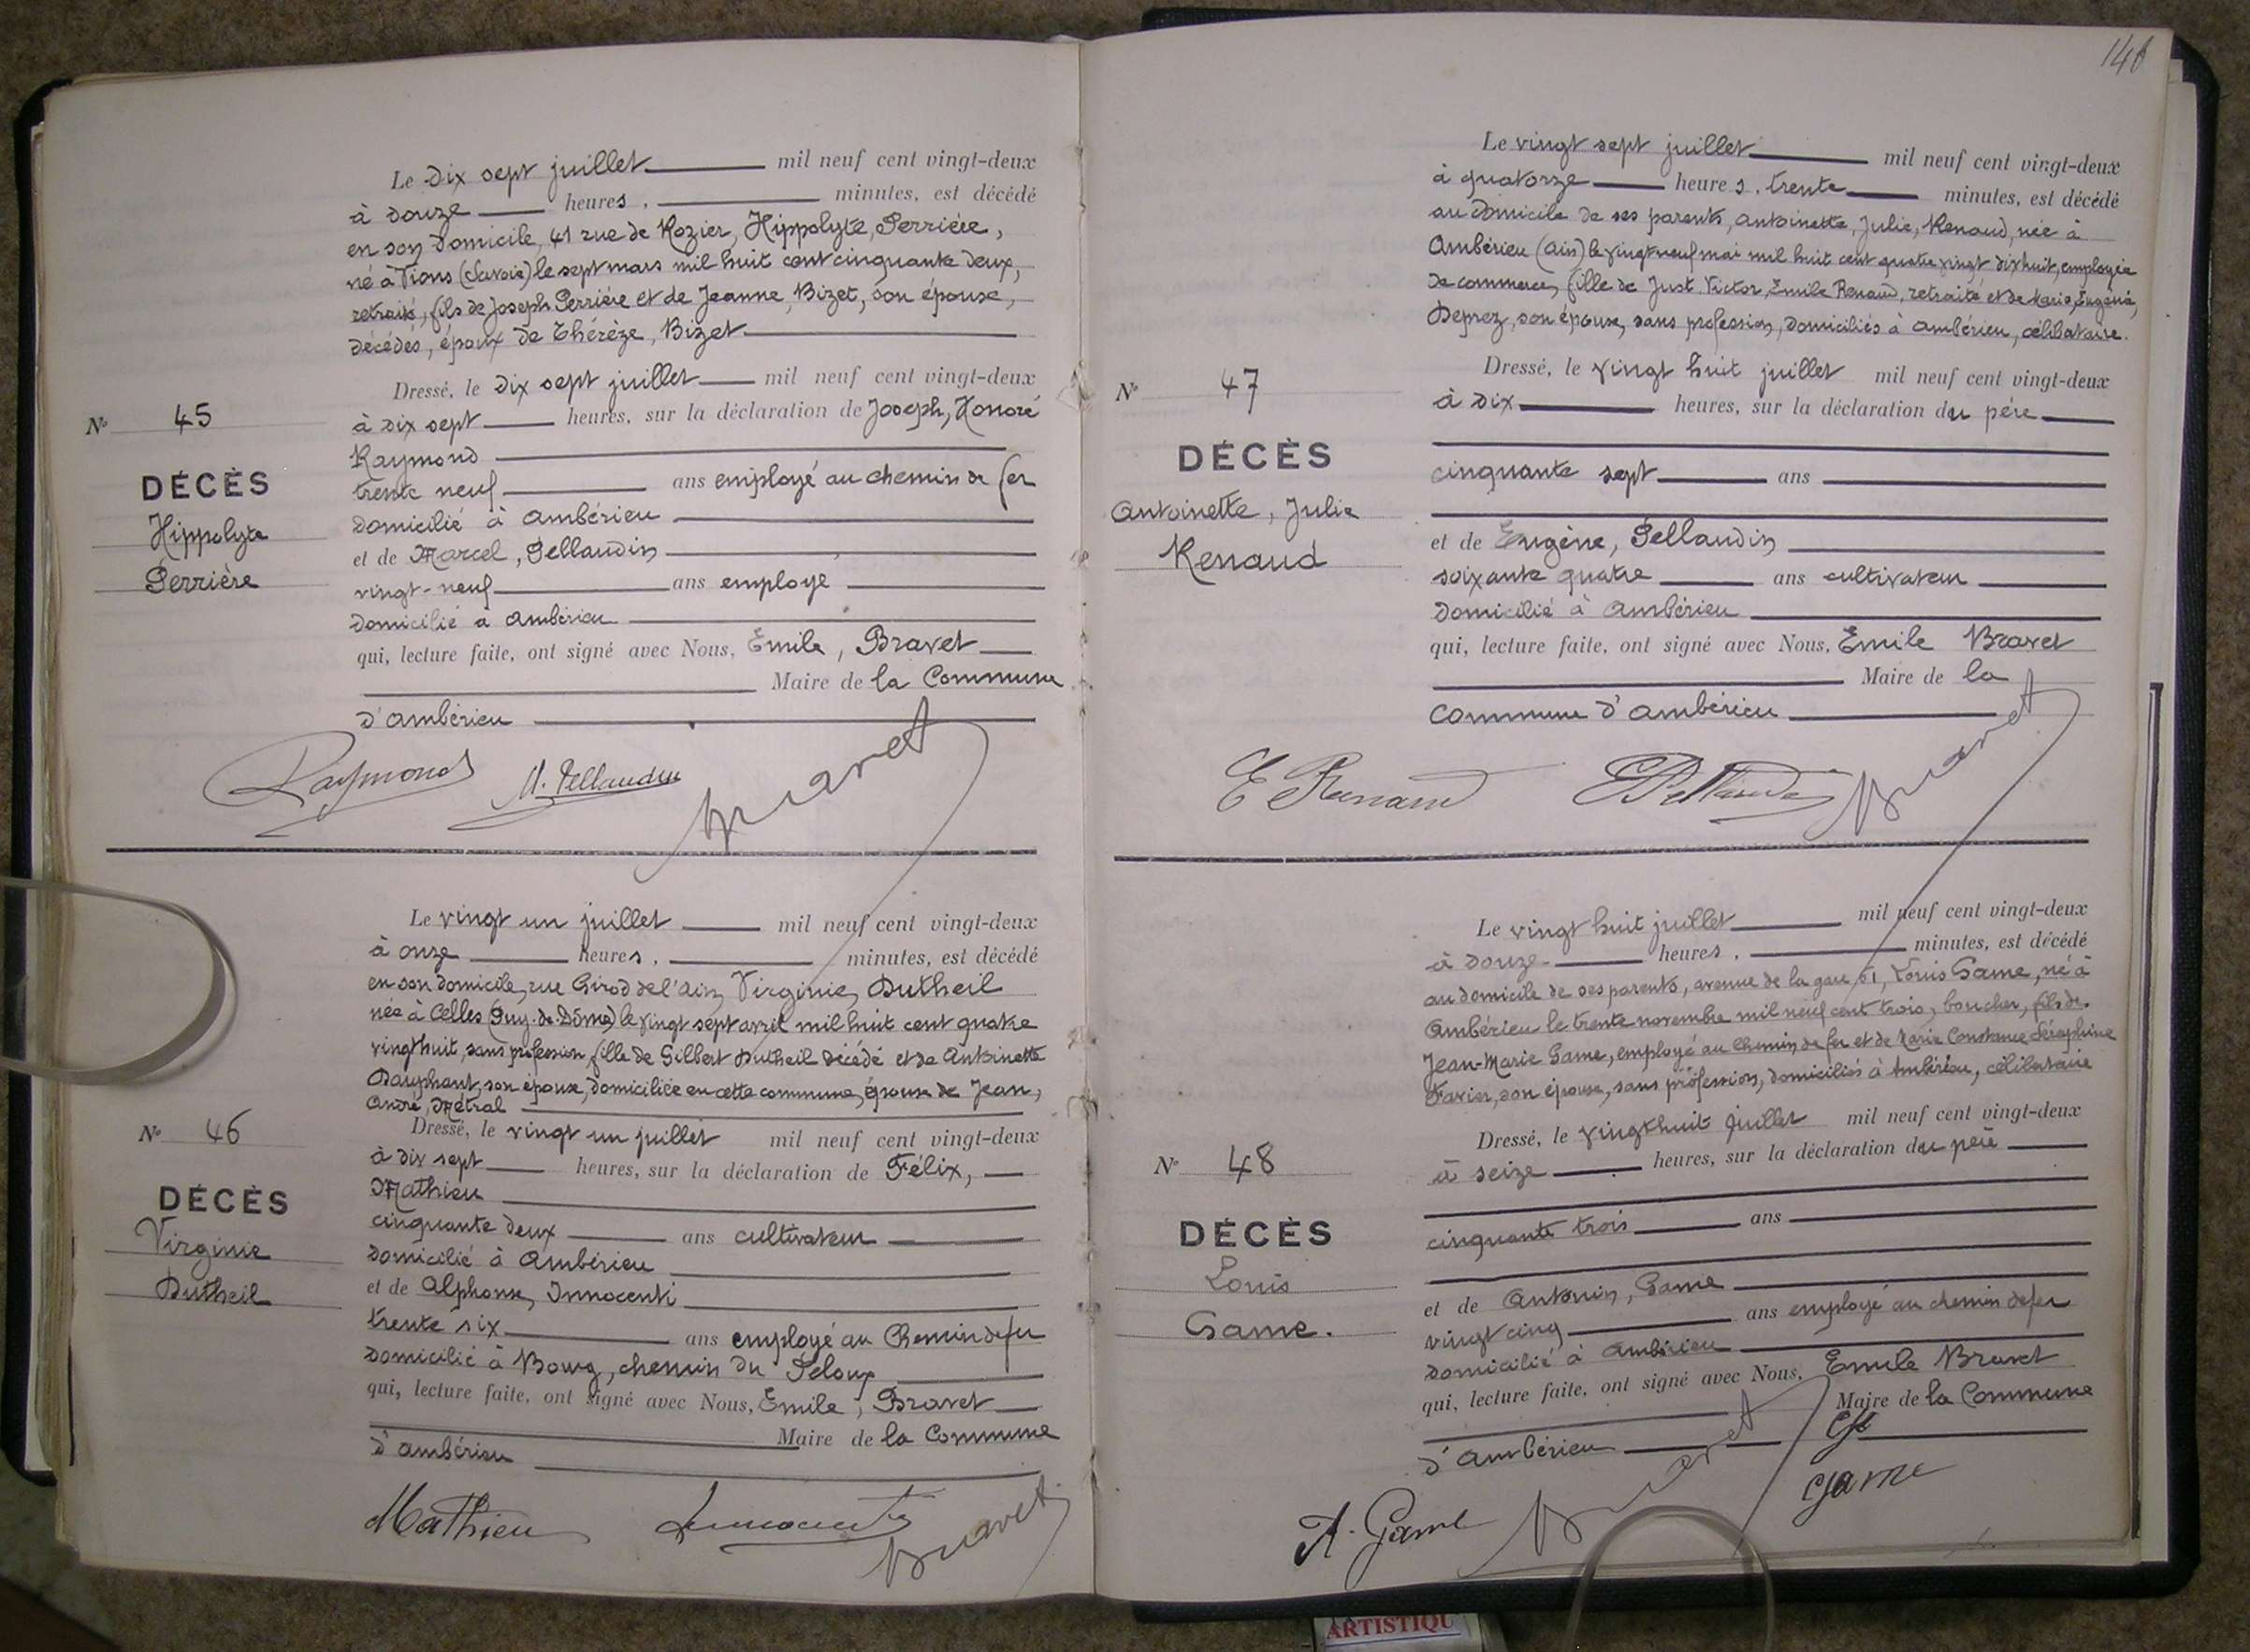 Le Dix sept juillet mil neuf cent vingt-deux
à douze heures, minutes, est décédé
en son domicile, 41 rue de Rozier, Hippolyte, Perrière,
né à Vions (Savoie) le sept mars mil huit cent cinquante deux,
retraité, fils de Joseph Perrière et de Jeanne, Bizet, son épouse,
décédés, époux de Thérèze, Bizet
Dressé, le dix sept juillet mil neuf cent vingt-deux
à dix sept heures, sur la déclaration de Joseph, Honoré
Raymond
trente neuf ans employé au chemin de fer
domicilié à Ambérieu
et de Marcel, Pellaudin
vingt-neuf ans employé
domicilié à Ambérieu
qui, lecture faite, ont signé avec Nous, Emile, Bravet
Maire de la Commune
d'Ambérieu
N° 45
DÉCÈS
Hippolyte
Perrière
Raymond M. Pellaudin Bravet
Le vingt un juillet mil neuf cent vingt-deux
à onze heures, minutes, est décédé
en son domicile, rue Girod de l'Ain, Virginie, Dutheil
née à Celles (Puy-de-Dôme) le vingt sept avril mil huit cent quatre
vingt huit, sans profession, fille de Gilbert Dutheil décédé et de Antoinette
Dauphant, son épouse, domiciliée en cette commune, épouse de Jean,
André, Métral
Dressé, le vingt un juillet mil neuf cent vingt-deux
à dix sept heures, sur la déclaration de Félix,
Mathieu
cinquante deux ans cultivateur
domicilié à Ambérieu
et de Alphonse, Innocenti
trente six ans employé au Chemin de fer
domicilié à Bourg, chemin du Peloux
qui, lecture faite, ont signé avec Nous, Emile, Bravet
Maire de la Commune
d'Ambérieu
N° 46
DÉCÈS
Virginie
Dutheil
Mathieu Innocenti Bravet
Le vingt sept juillet mil neuf cent vingt-deux
à quatorze heures, trente minutes, est décédé
au domicile de ses parents, Antoinette, Julie, Renaud, née à
Ambérieu (Ain) le vingt neuf mai mil huit cent quatre vingt dix huit, employée
de commerce, fille de Just, Victor, Emile Renaud, retraité et de Marie, Eugénie,
Deprez, son épouse, sans profession, domiciliés à Ambérieu, célibataire.
Dressé, le vingt huit juillet mil neuf cent vingt-deux
à dix heures, sur la déclaration du père
cinquante sept ans
et de Eugène, Pellaudin
soixante quatre ans cultivateur
domicilié à Ambérieu
qui, lecture faite, ont signé avec Nous, Emile Bravet
Maire de la
commune d'Ambérieu
N° 47
DÉCÈS
Antoinette, Julie
Renaud
E Renaud E Pellaudin Bravet
Le vingt huit juillet mil neuf cent vingt-deux
à douze heures, minutes, est décédé
au domicile de ses parents, avenue de la gare 51, Louis Game, né à
Ambérieu le trente novembre mil neuf cent trois, boucher, fils de
Jean-Marie Game, employé au chemin de fer et de Marie Constance Séraphine
Favier, son épouse, sans profession, domiciliés à Ambérieu, célibataire
Dressé, le vingt huit juillet mil neuf cent vingt-deux
à seize heures, sur la déclaration du père
cinquante trois ans
et de Antonin, Game
vingt cinq ans employé au chemin de fer
domicilié à Ambérieu
qui, lecture faite, ont signé avec Nous, Emile Bravet
Maire de la Commune
d'Ambérieu
N° 48
DÉCÈS
Louis
Game.
A. Game Bravet Game
ARTISTIQU